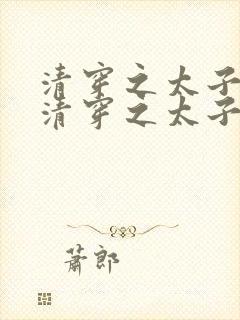 清穿之太子
清穿之太子
蕭郎